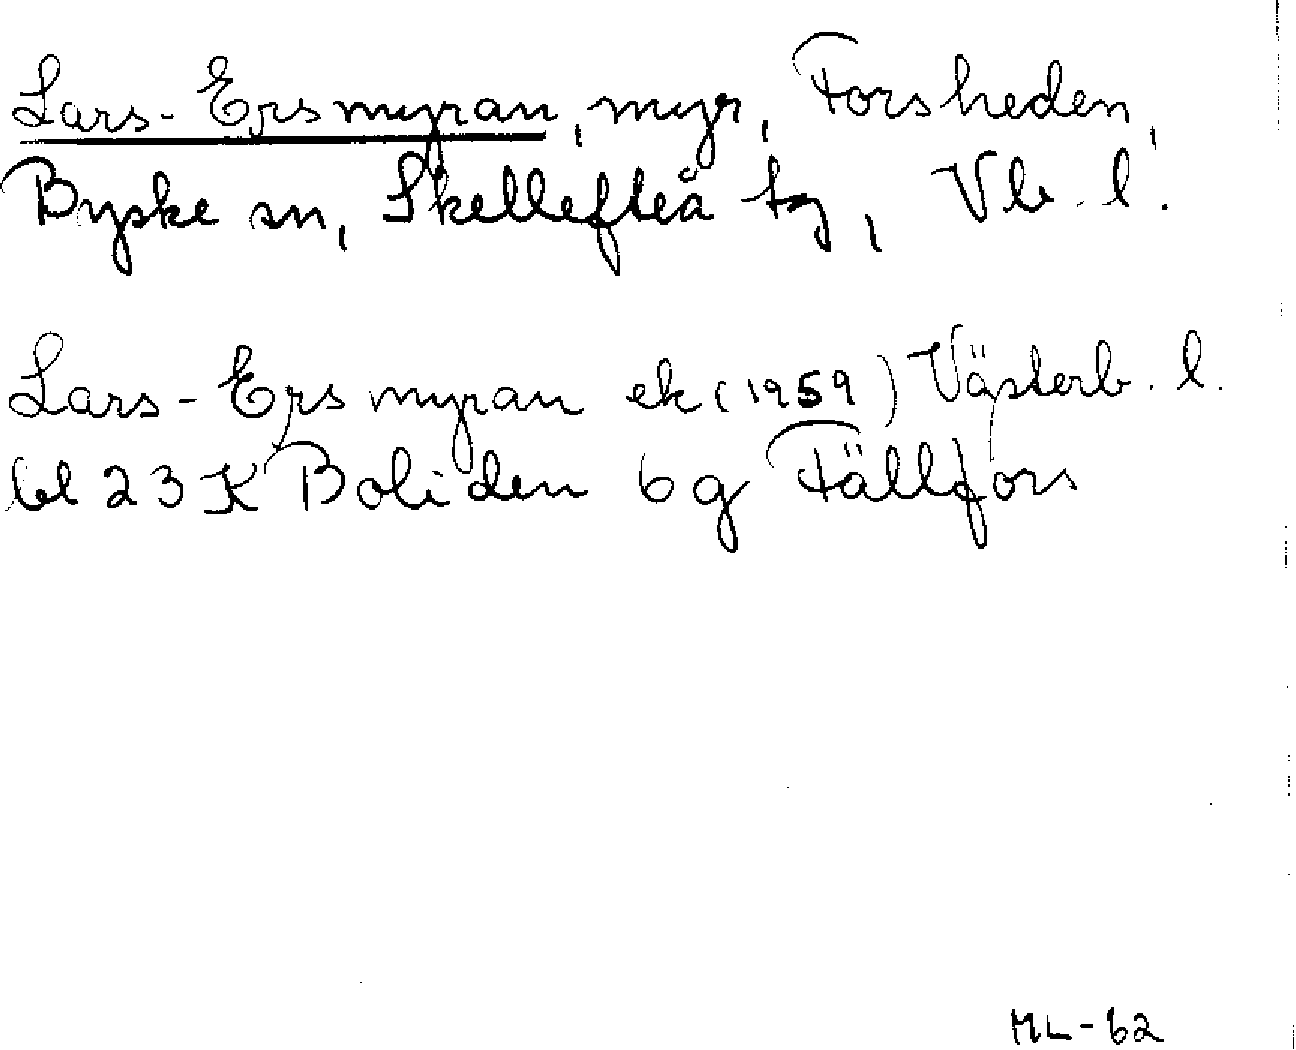 Lars-Ersmyran, myr, Forsheden,
Byske sn, Skellefteå tg, Vb. l.
Lars-Ersmyran ek (1959) Västerb. l.
bl 23 K Boliden 6 g Fällfors
ML-62